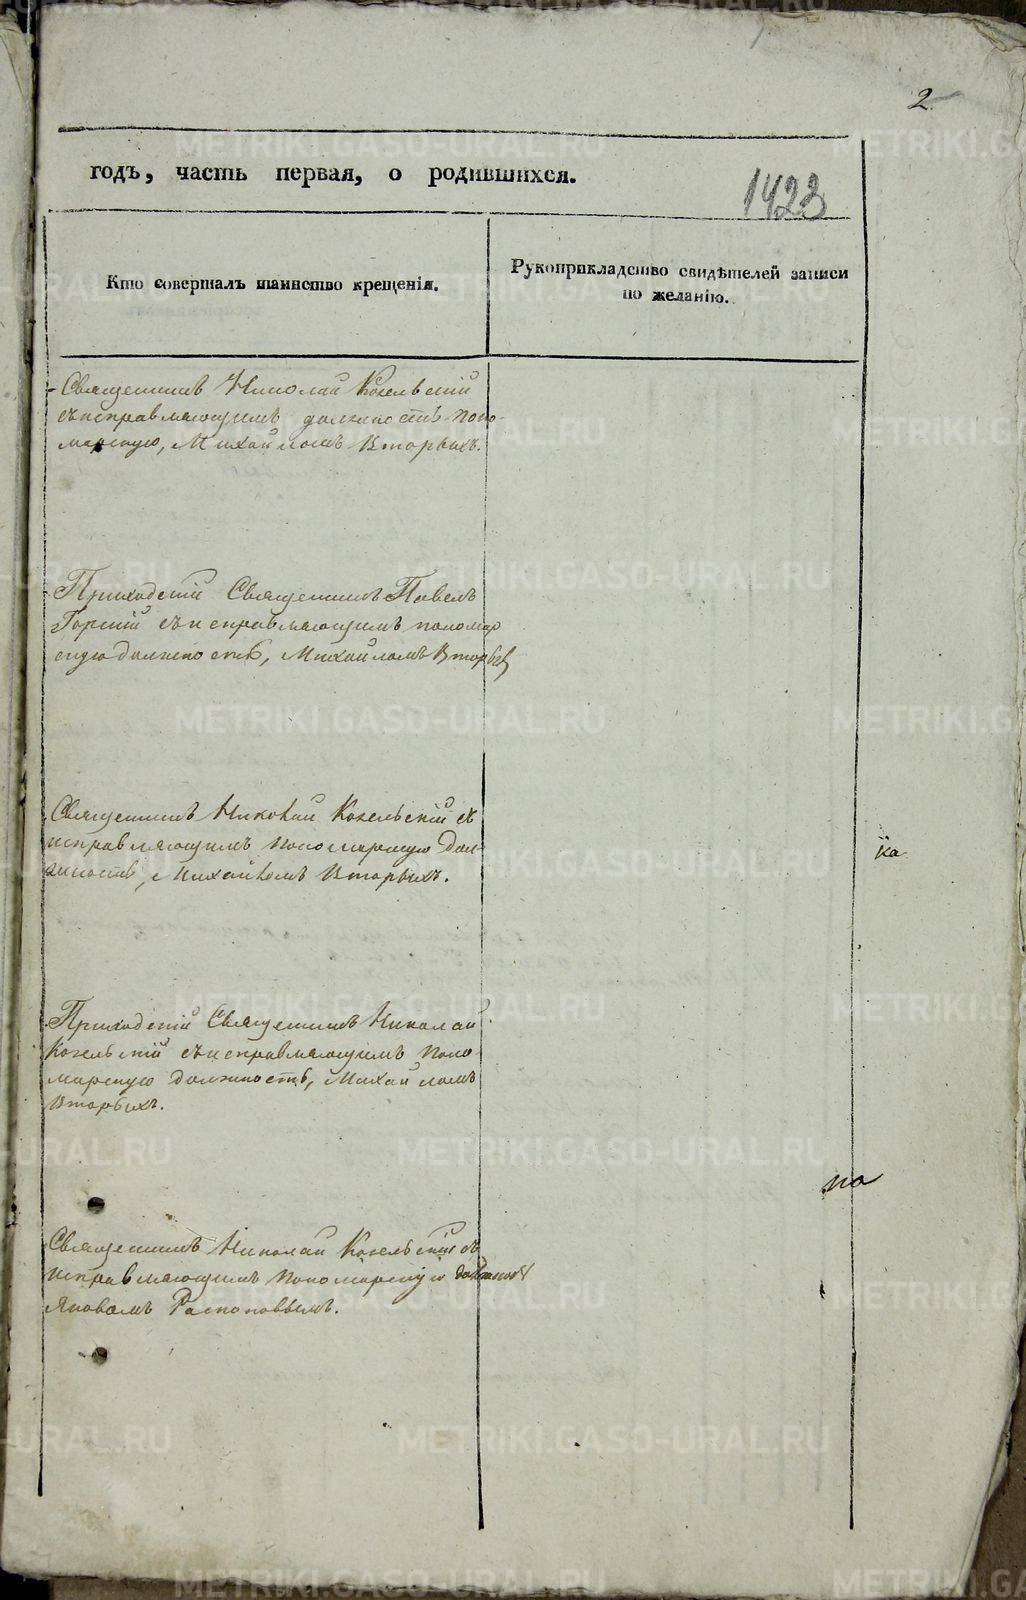 2.
годъ, часть первая, о родившихся.
1423
Кто совершалъ таинство крещенія.
Рукоприкладство свидѣтелей записи
по желанію.
Священникъ Николай Козельскій
съ исправляющимъ должность поно-
марскую, Михайломъ Вторыхъ.
Приходскій Священникъ Павелъ
Горскій съ исправляющимъ пономар
скую должность, Михайломъ Вторых
Священникъ Николай Козельскій съ
исправляющимъ пономарскую дол-
жность, Михайломъ Вторыхъ.
Приходскій Священникъ Николай
Козельскій съ исправляющимъ поно
марскую должность, Михайломъ
Вторыхъ.
Священникъ Николай Козельскій съ
исправляющимъ пономарскую должность
Яковомъ Распоповымъ.
ка
па
METRIKI.GASO-URAL.RU